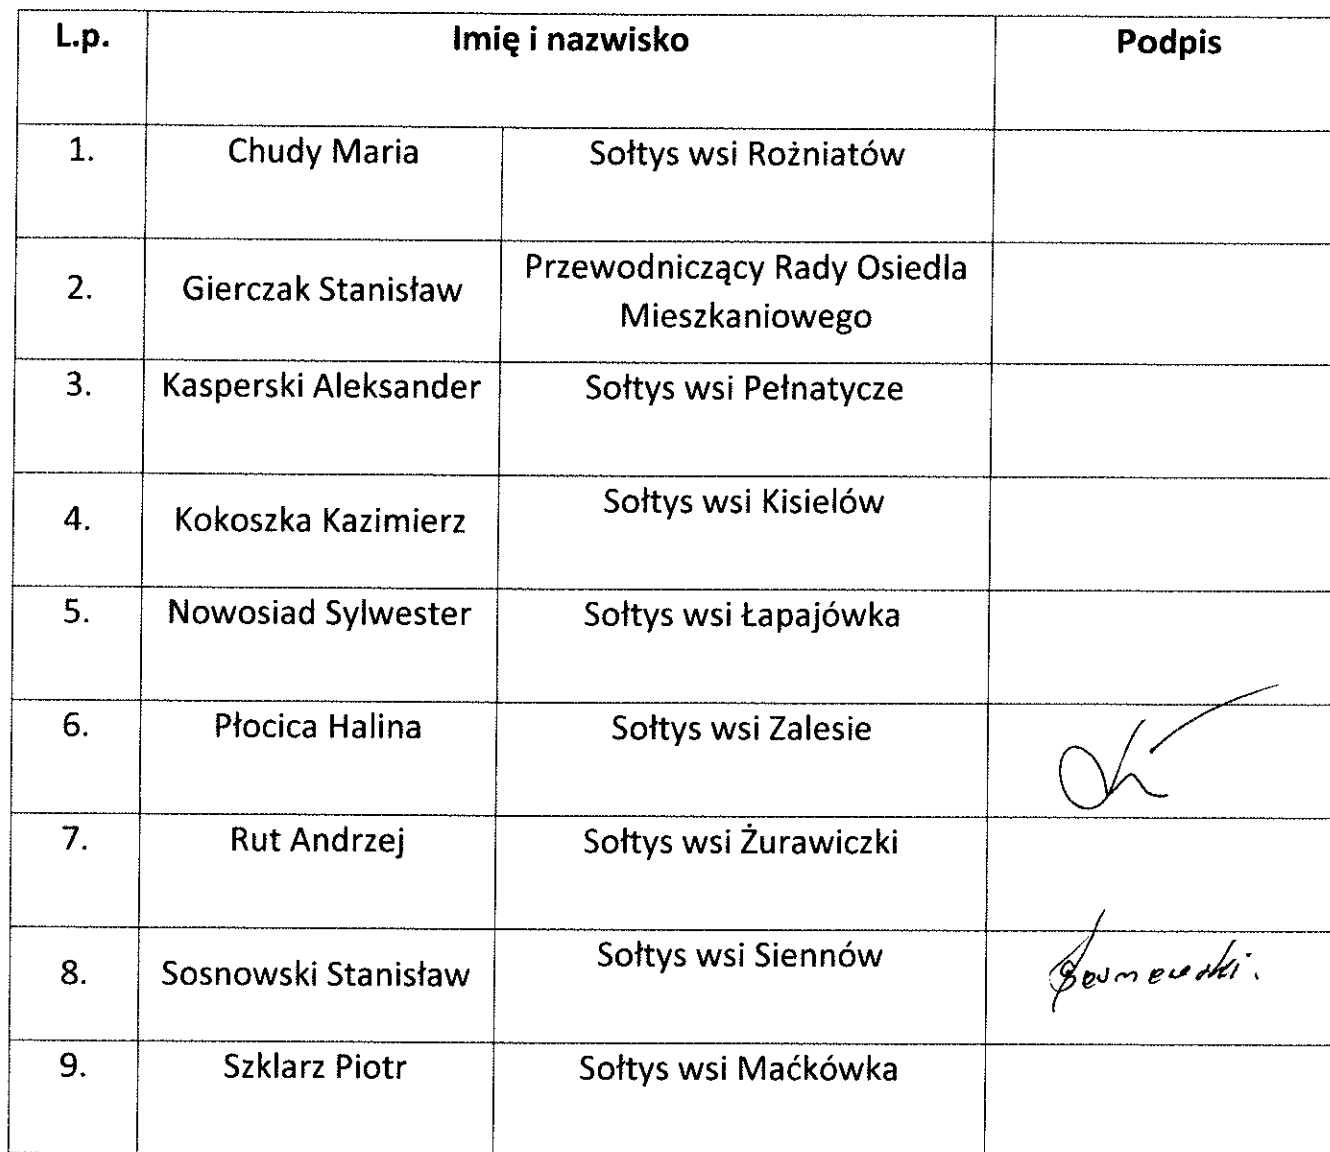 L.p. Imię i nazwisko Podpis
1. Chudy Maria Sołtys wsi Rożniatów
2. Gierczak Stanisław Przewodniczący Rady Osiedla
Mieszkaniowego
3. Kasperski Aleksander Sołtys wsi Pełnatycze
4. Kokoszka Kazimierz Sołtys wsi Kisielów
5. Nowosiad Sylwester Sołtys wsi Łapajówka
6. Płocica Halina Sołtys wsi Zalesie
7. Rut Andrzej Sołtys wsi Żurawiczki
8. Sosnowski Stanisław Sołtys wsi Siennów
9. Szklarz Piotr Sołtys wsi Maćkówka